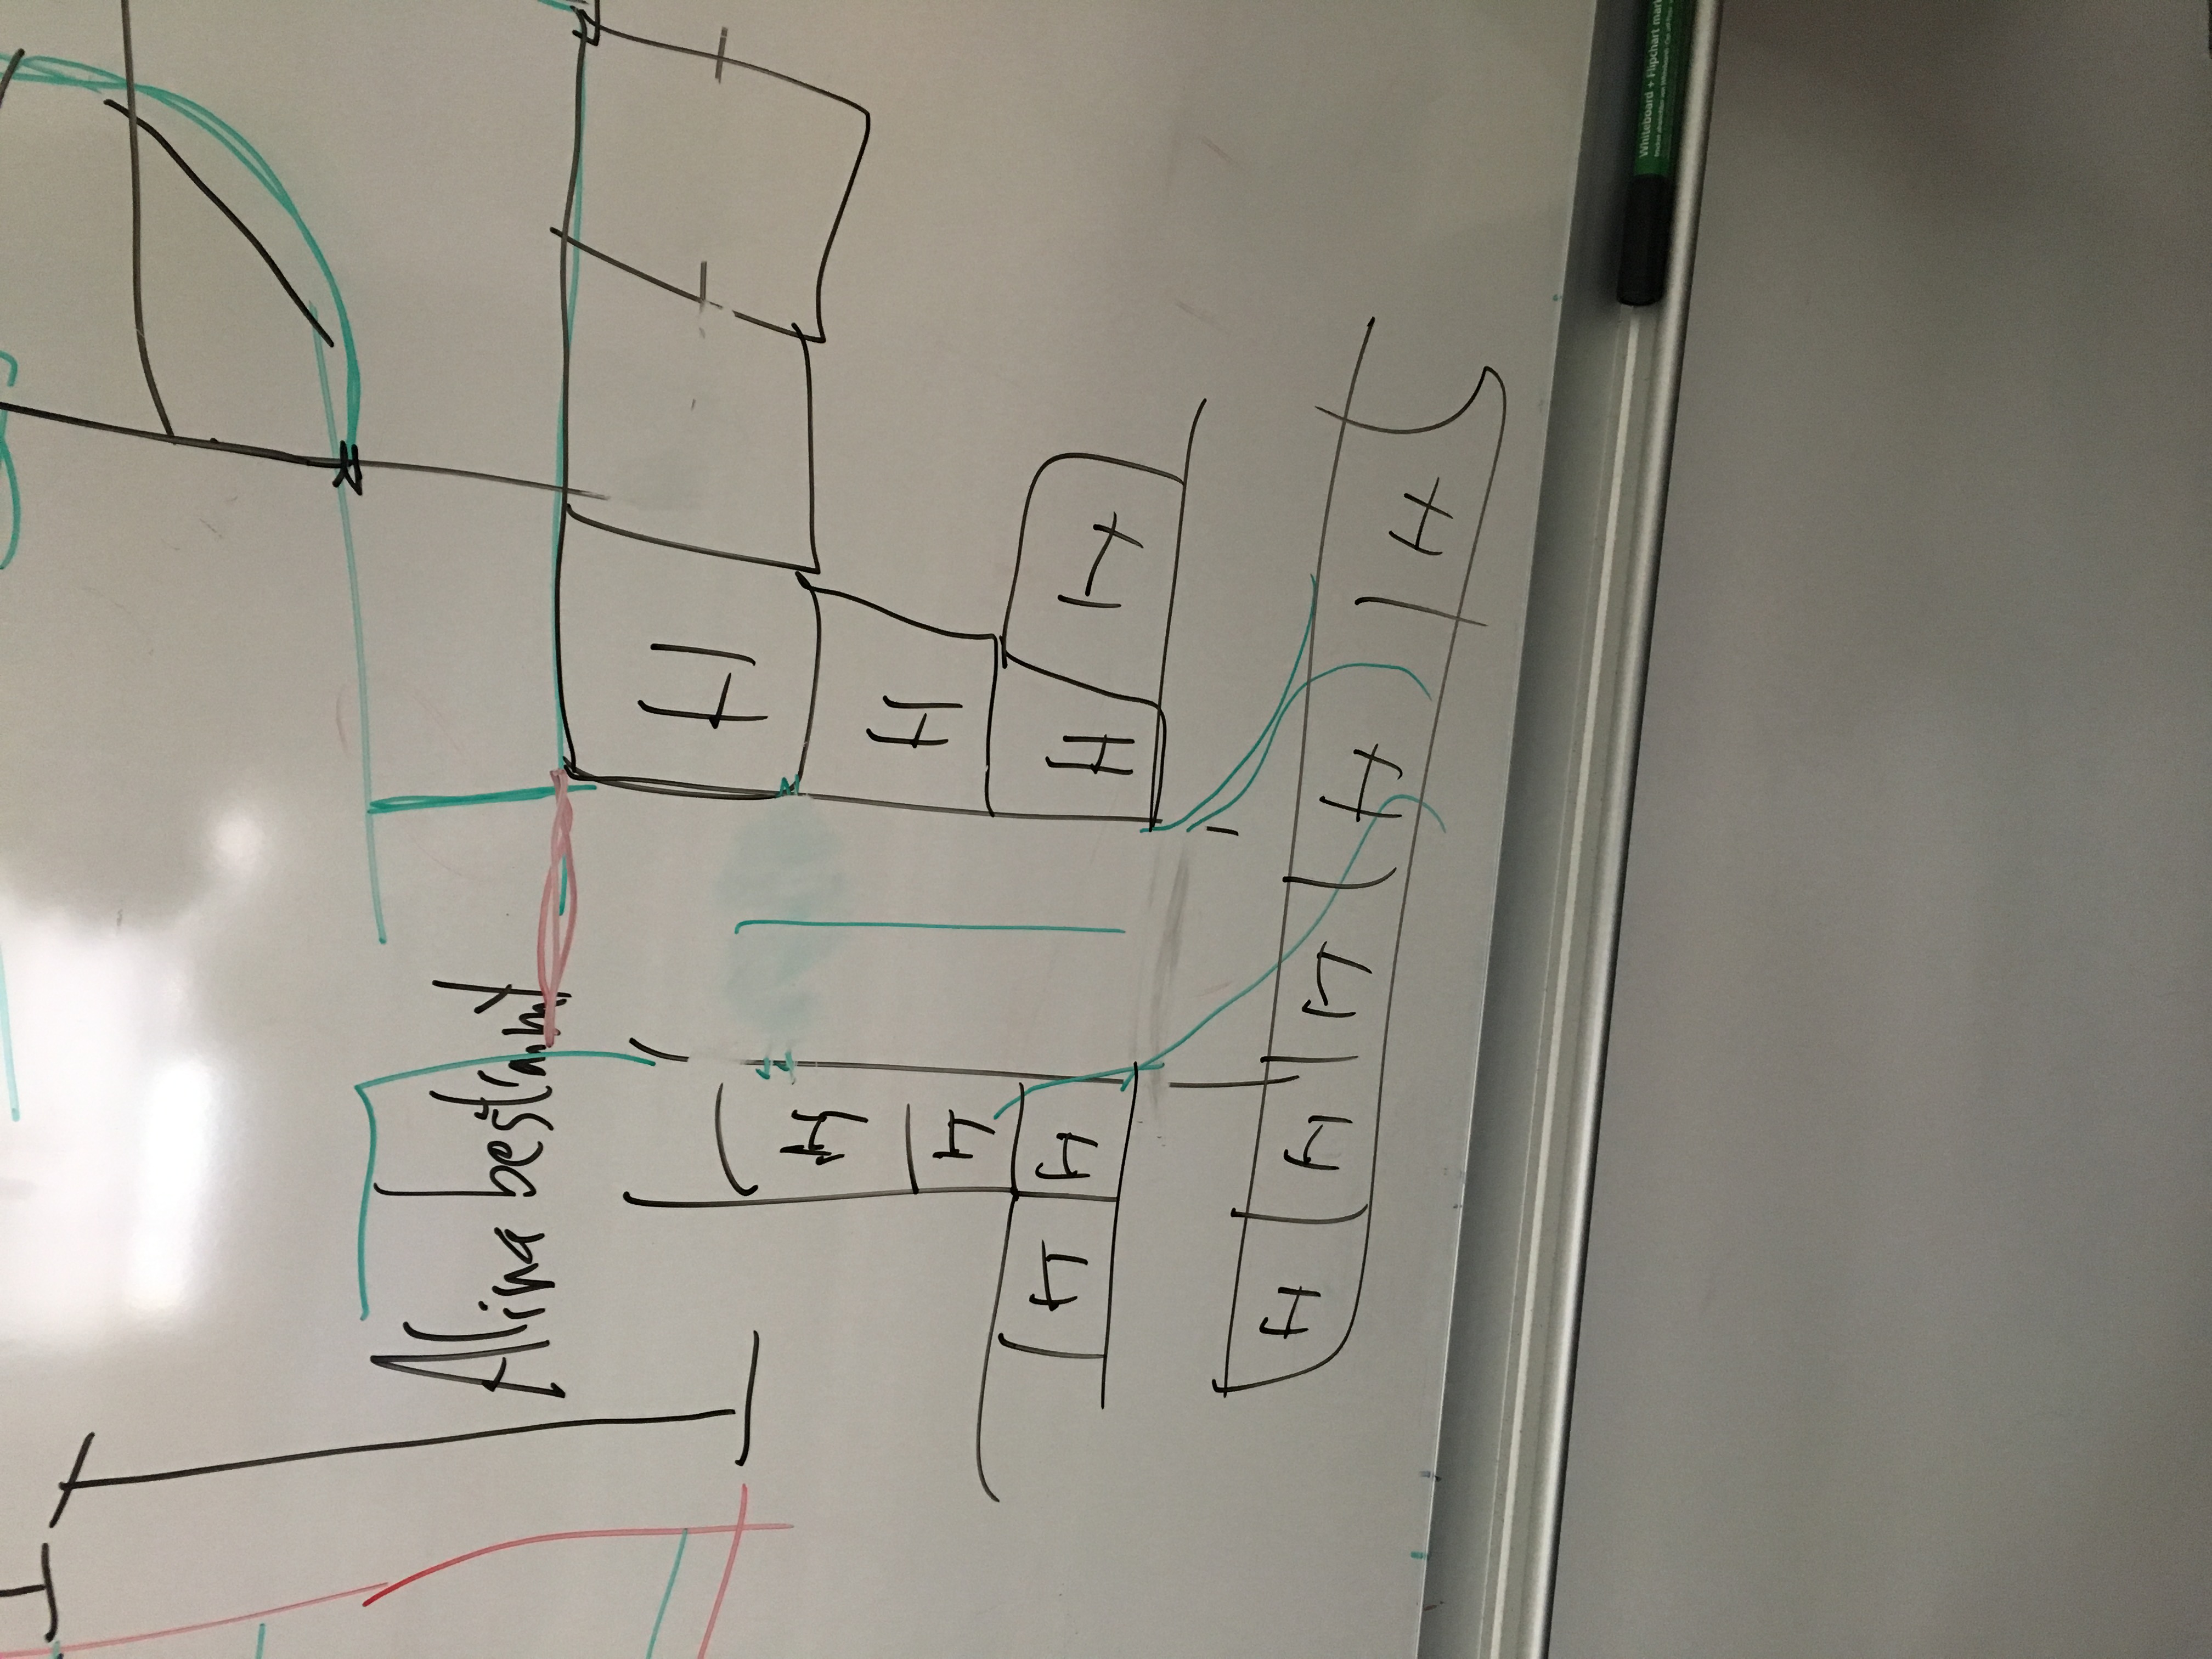 Alina bestimmt
H
H
H
H
H
H
H
H
H
H
H
H
H
Whiteboard + Flipchart mar